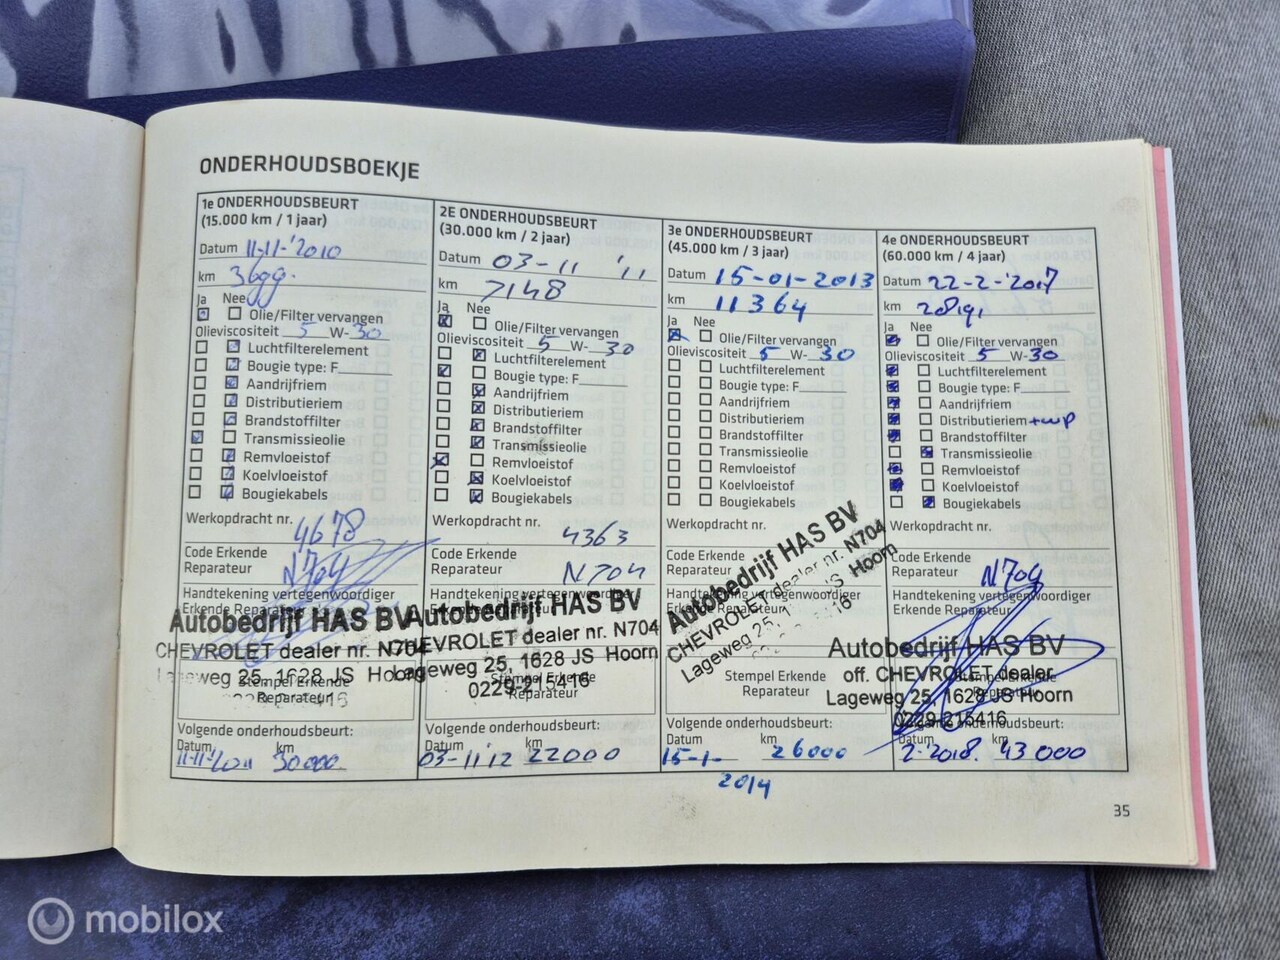 ONDERHOUDSBOEKJE
1e ONDERHOUDSBEURT
(15.000 km / 1 jaar)
Datum 11-11-'2010
km 3699.
Ja Nee
Olie/Filter vervangen
Olieviscositeit 5 W- 30
Luchtfilterelement
Bougie type: F
Aandrijfriem
Distributieriem
Brandstoffilter
Transmissieolie
Remvloeistof
Koelvloeistof
Bougiekabels
Werkopdracht nr.
4678
Code Erkende
Reparateur N704
Handtekening vertegenwoordiger
Erkende Reparateur
Autobedrijf HAS BV
CHEVROLET dealer nr. N704
Lageweg 25, 1628 JS Hoorn
Stempel Erkende
Reparateur
Volgende onderhoudsbeurt:
Datum km
11-11-'2011 30000
2E ONDERHOUDSBEURT
(30.000 km / 2 jaar)
Datum 03-11 '11
km 7148
Ja Nee
Olie/Filter vervangen
Olieviscositeit 5 W- 30
Luchtfilterelement
Bougie type: F
Aandrijfriem
Distributieriem
Brandstoffilter
Transmissieolie
Remvloeistof
Koelvloeistof
Bougiekabels
Werkopdracht nr.
4363
Code Erkende
Reparateur N704
Handtekening vertegenwoordiger
Erkende Reparateur
Autobedrijf HAS BV
CHEVROLET dealer nr. N704
Lageweg 25, 1628 JS Hoorn
0229-215416
Stempel Erkende
Reparateur
Volgende onderhoudsbeurt:
Datum km
03-11'12 22000
3e ONDERHOUDSBEURT
(45.000 km / 3 jaar)
Datum 15-01-2013
km 11364
Ja Nee
Olie/Filter vervangen
Olieviscositeit 5 W- 30
Luchtfilterelement
Bougie type: F
Aandrijfriem
Distributieriem
Brandstoffilter
Transmissieolie
Remvloeistof
Koelvloeistof
Bougiekabels
Werkopdracht nr.
Code Erkende
Reparateur
Handtekening vertegenwoordiger
Erkende Reparateur
Autobedrijf HAS BV
CHEVROLET dealer nr. N704
Lageweg 25, JS Hoorn
Stempel Erkende
Reparateur
Volgende onderhoudsbeurt:
Datum km
15-1- 26000
2014
4e ONDERHOUDSBEURT
(60.000 km / 4 jaar)
Datum 22-2-'2017
km 28191
Ja Nee
Olie/Filter vervangen
Olieviscositeit 5 W-30
Luchtfilterelement
Bougie type: F
Aandrijfriem
Distributieriem +wp
Brandstoffilter
Transmissieolie
Remvloeistof
Koelvloeistof
Bougiekabels
Werkopdracht nr.
Code Erkende
Reparateur N704
Handtekening vertegenwoordiger
Erkende Reparateur
Autobedrijf HAS BV
off. CHEVROLET dealer
Lageweg 25, 1628 JS Hoorn
0229-215416
Stempel Erkende
Reparateur
Volgende onderhoudsbeurt:
Datum km
2-2018. 43000
35
mobilox